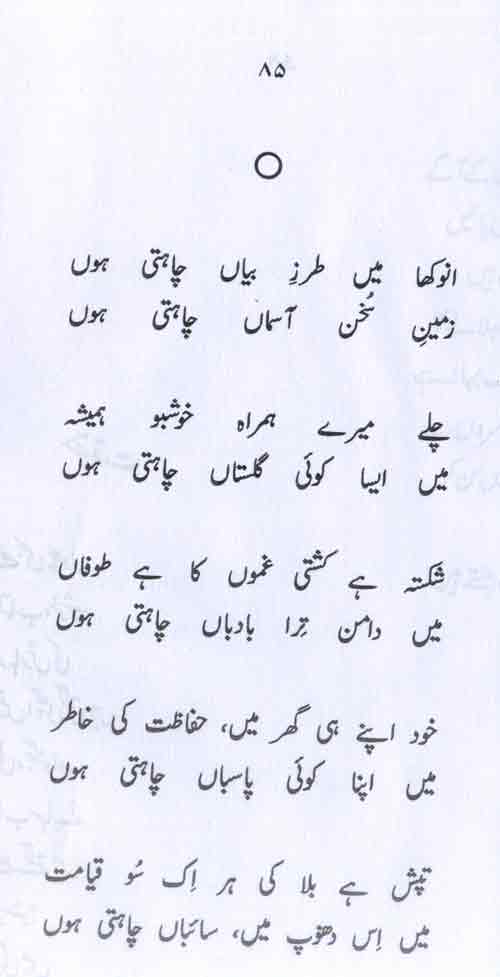 ۸۵
انوکھا میں طرزِ بیاں چاہتی ہوں
زمینِ سُخن آسماں چاہتی ہوں
چلے میرے ہمراہ خوشبو ہمیشہ
میں ایسا کوئی گلستاں چاہتی ہوں
شکستہ ہے کشتی غموں کا ہے طوفاں
میں دامن تِرا بادباں چاہتی ہوں
خود اپنے ہی گھر میں، حفاظت کی خاطر
میں اپنا کوئی پاسباں چاہتی ہوں
تپش ہے بلا کی ہر اِک سُو قیامت
میں اِس دھوپ میں، سائباں چاہتی ہوں